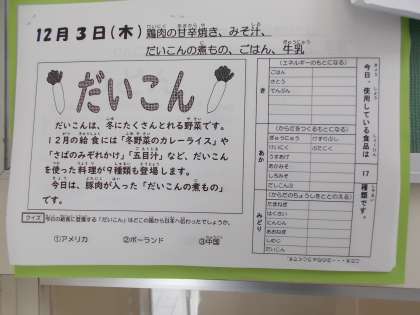 12月3日(木) 鶏肉の甘辛焼き、みそ汁、
だいこんの煮もの、ごはん、牛乳
だいこん
だいこんは、冬にたくさんとれる野菜です。
12月の給食には「冬野菜のカレーライス」や
「さばのみぞれかけ」「五目汁」など、だいこん
を使った料理が9種類も登場します。
今日は、豚肉が入った「だいこんの煮もの」
です。
クイズ 今日の給食に登場する「だいこん」はどこの国から日本へ伝わったでしょうか。
①アメリカ ②ポーランド ③中国
今日、使用している食品は 17 種類です。
き
(エネルギーのもとになる)
ごはん
さとう
でんぷん
あか
(からだをつくるもとになる)
ぎゅうにゅう けずりぶし
けいにく ぶたにく
うすあげ
あかみそ
しろみそ
だしこんぶ
みどり
(からだのちょうしをととのえる)
たまねぎ
はくさい
にんじん
あおねぎ
しめじ
だいこん